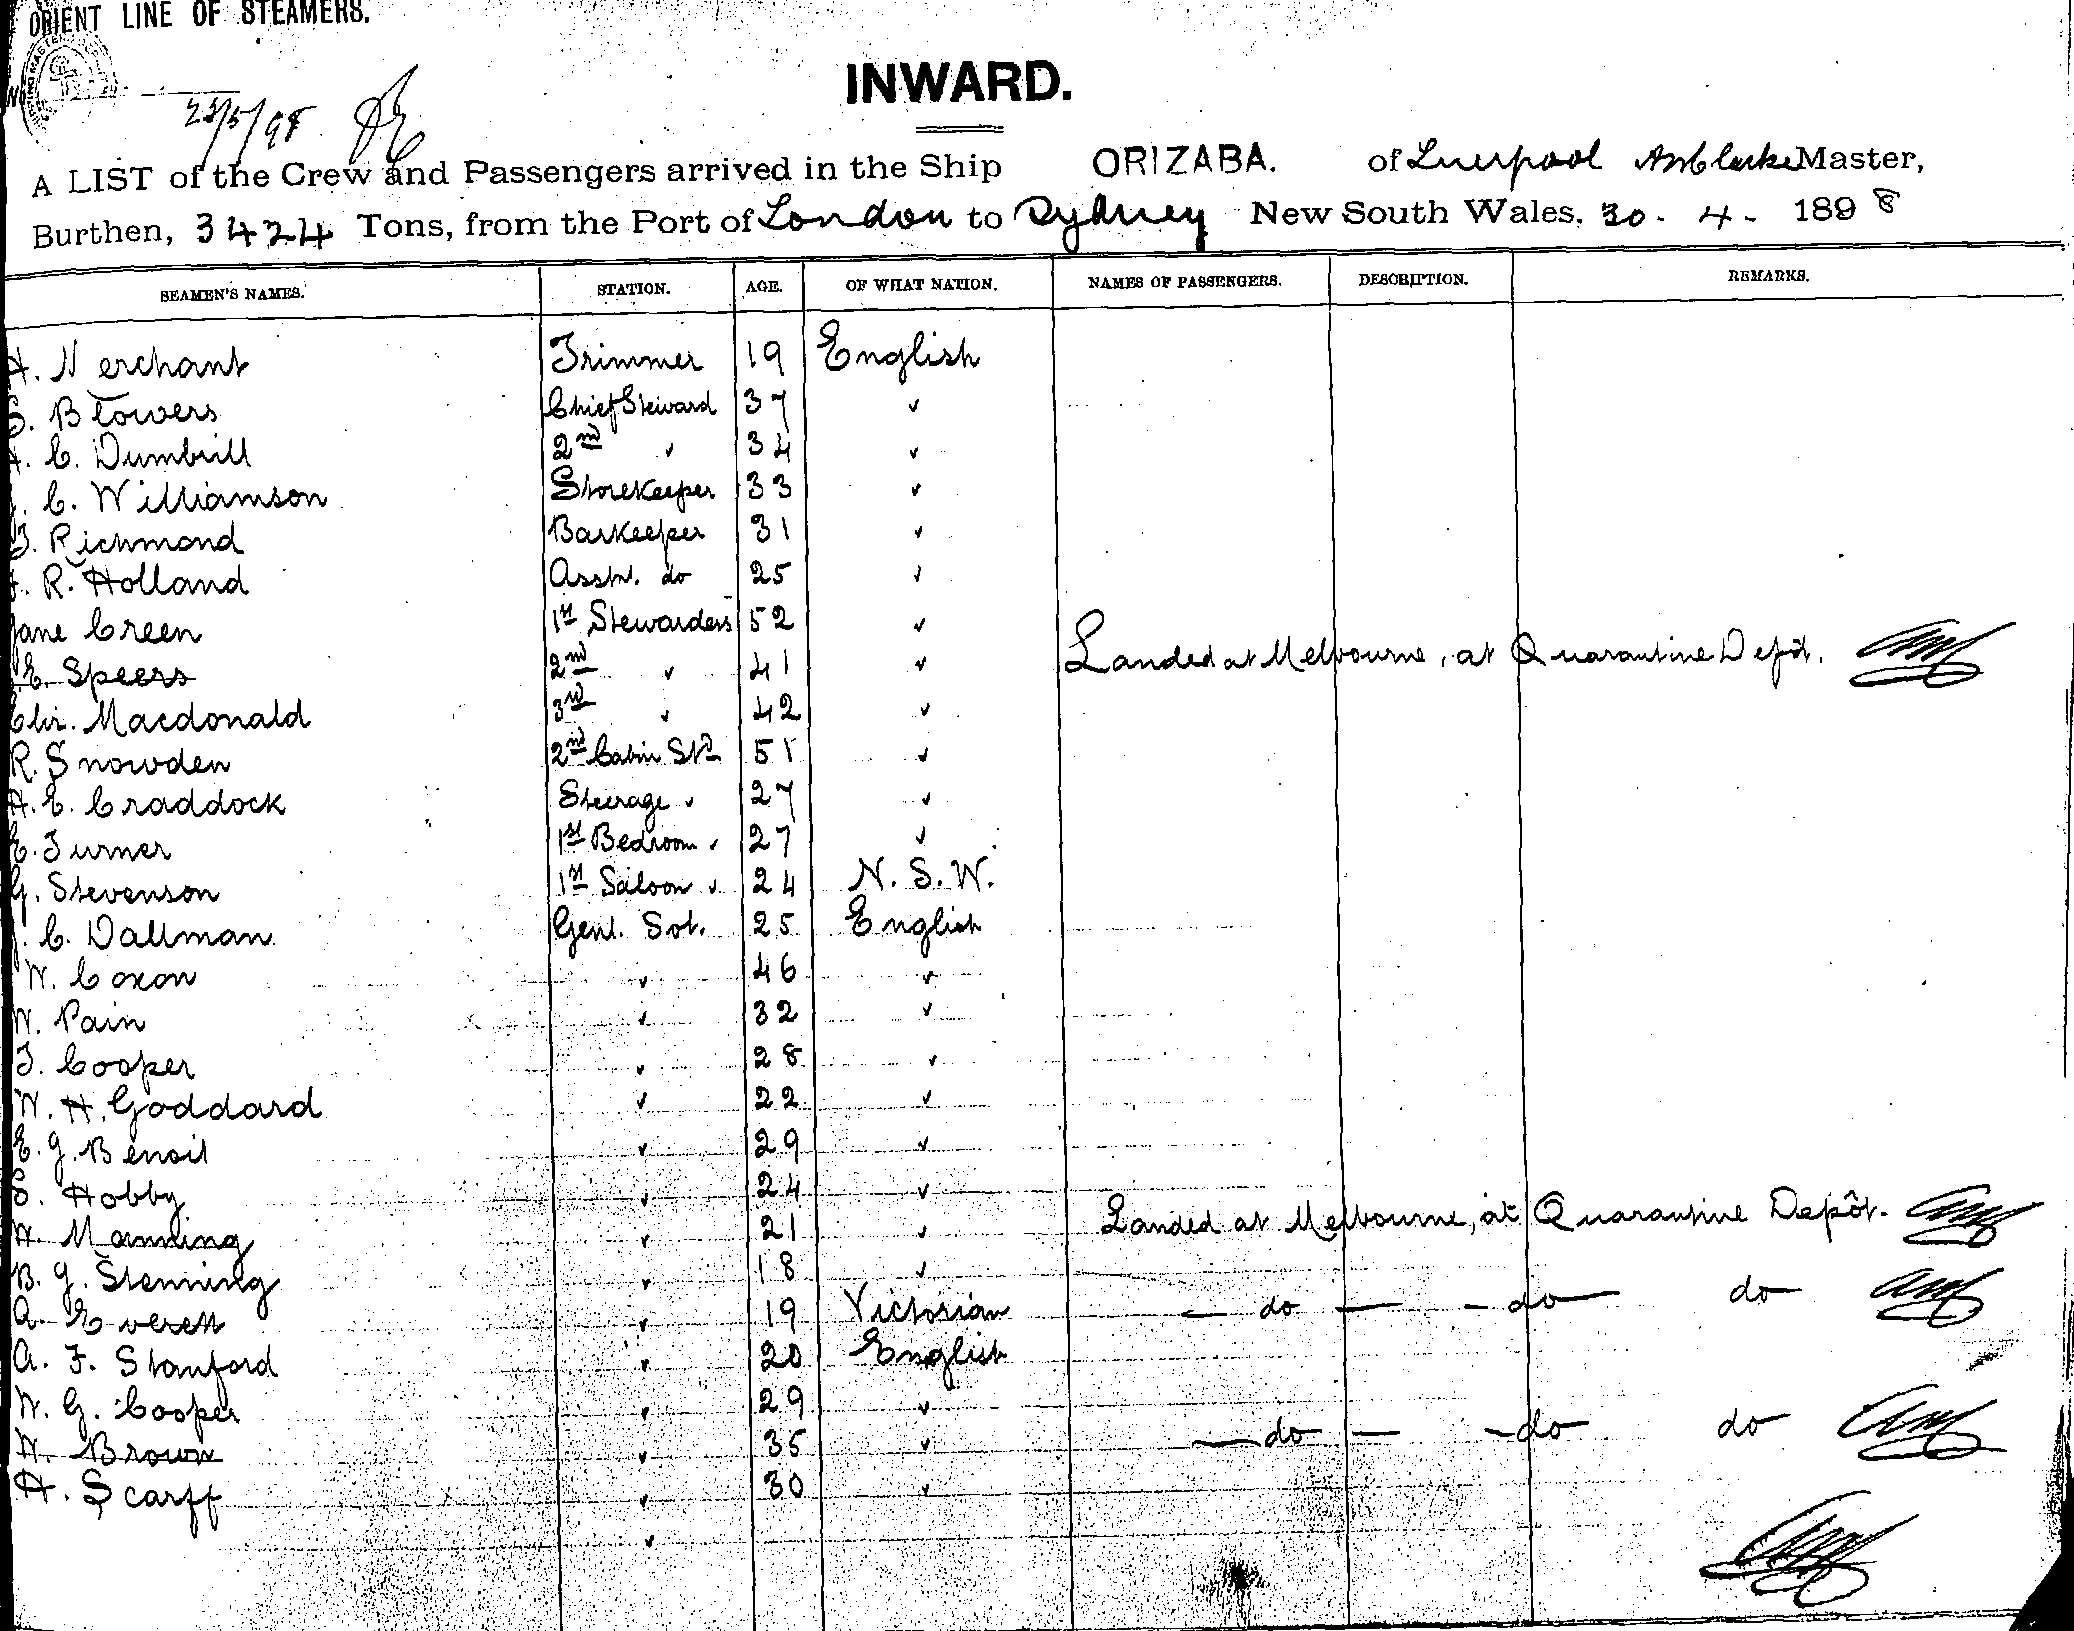 ORIENT LINE OF STEAMERS.
INWARD.
23/5/98
A LIST of the Crew and Passengers arrived in the Ship ORIZABA. of Liverpool Master,
Burthen, 3424 Tons, from the Port of London to Sydney New South Wales, 30 - 4 - 1898
SEAMEN'S NAMES. STATION. AGE. OF WHAT NATION. NAMES OF PASSENGERS. DESCRIPTION. REMARKS.
Merchant Trimmer 19 English
Blowers Chief Steward 37 ✓
C. Dumbrill 2nd ✓ 34 ✓
C. Williamson Storekeeper 33 ✓
Richmond Barkeeper 31 ✓
R. Holland Asst. do 25 ✓
Jane Green 1st Stewardess 52 ✓
E. Speers 2nd ✓ 41 ✓ Landed at Melbourne, at Quarantine Depôt.
Macdonald 3rd ✓ 42 ✓
R. Snowden 2nd Cabin Std 51 ✓
A. E. Craddock Steerage ✓ 27 ✓
E. Turner 1st Bedroom ✓ 27 ✓
G. Stevenson 1st Saloon ✓ 24 N. S. W.
C. Dallman Genl. Svt. 25 English
W. Coxon ✓ 46 ✓
W. Pain ✓ 32 ✓
T. Cooper ✓ 28 ✓
W. H. Goddard ✓ 22 ✓
E. G. Benoit ✓ 29 ✓
S. Hobby ✓ 24 ✓
Manning ✓ 21 ✓ Landed at Melbourne, at Quarantine Depôt.
B. G. Stenning ✓ 18 ✓
A. Everett ✓ 19 Victorian — do — - do — do
A. F. Stanford ✓ 20 English
W. G. Cooper ✓ 29 ✓
W. Brown ✓ 35 ✓ — do — - do — do
H. Scarff ✓ 30 ✓
✓